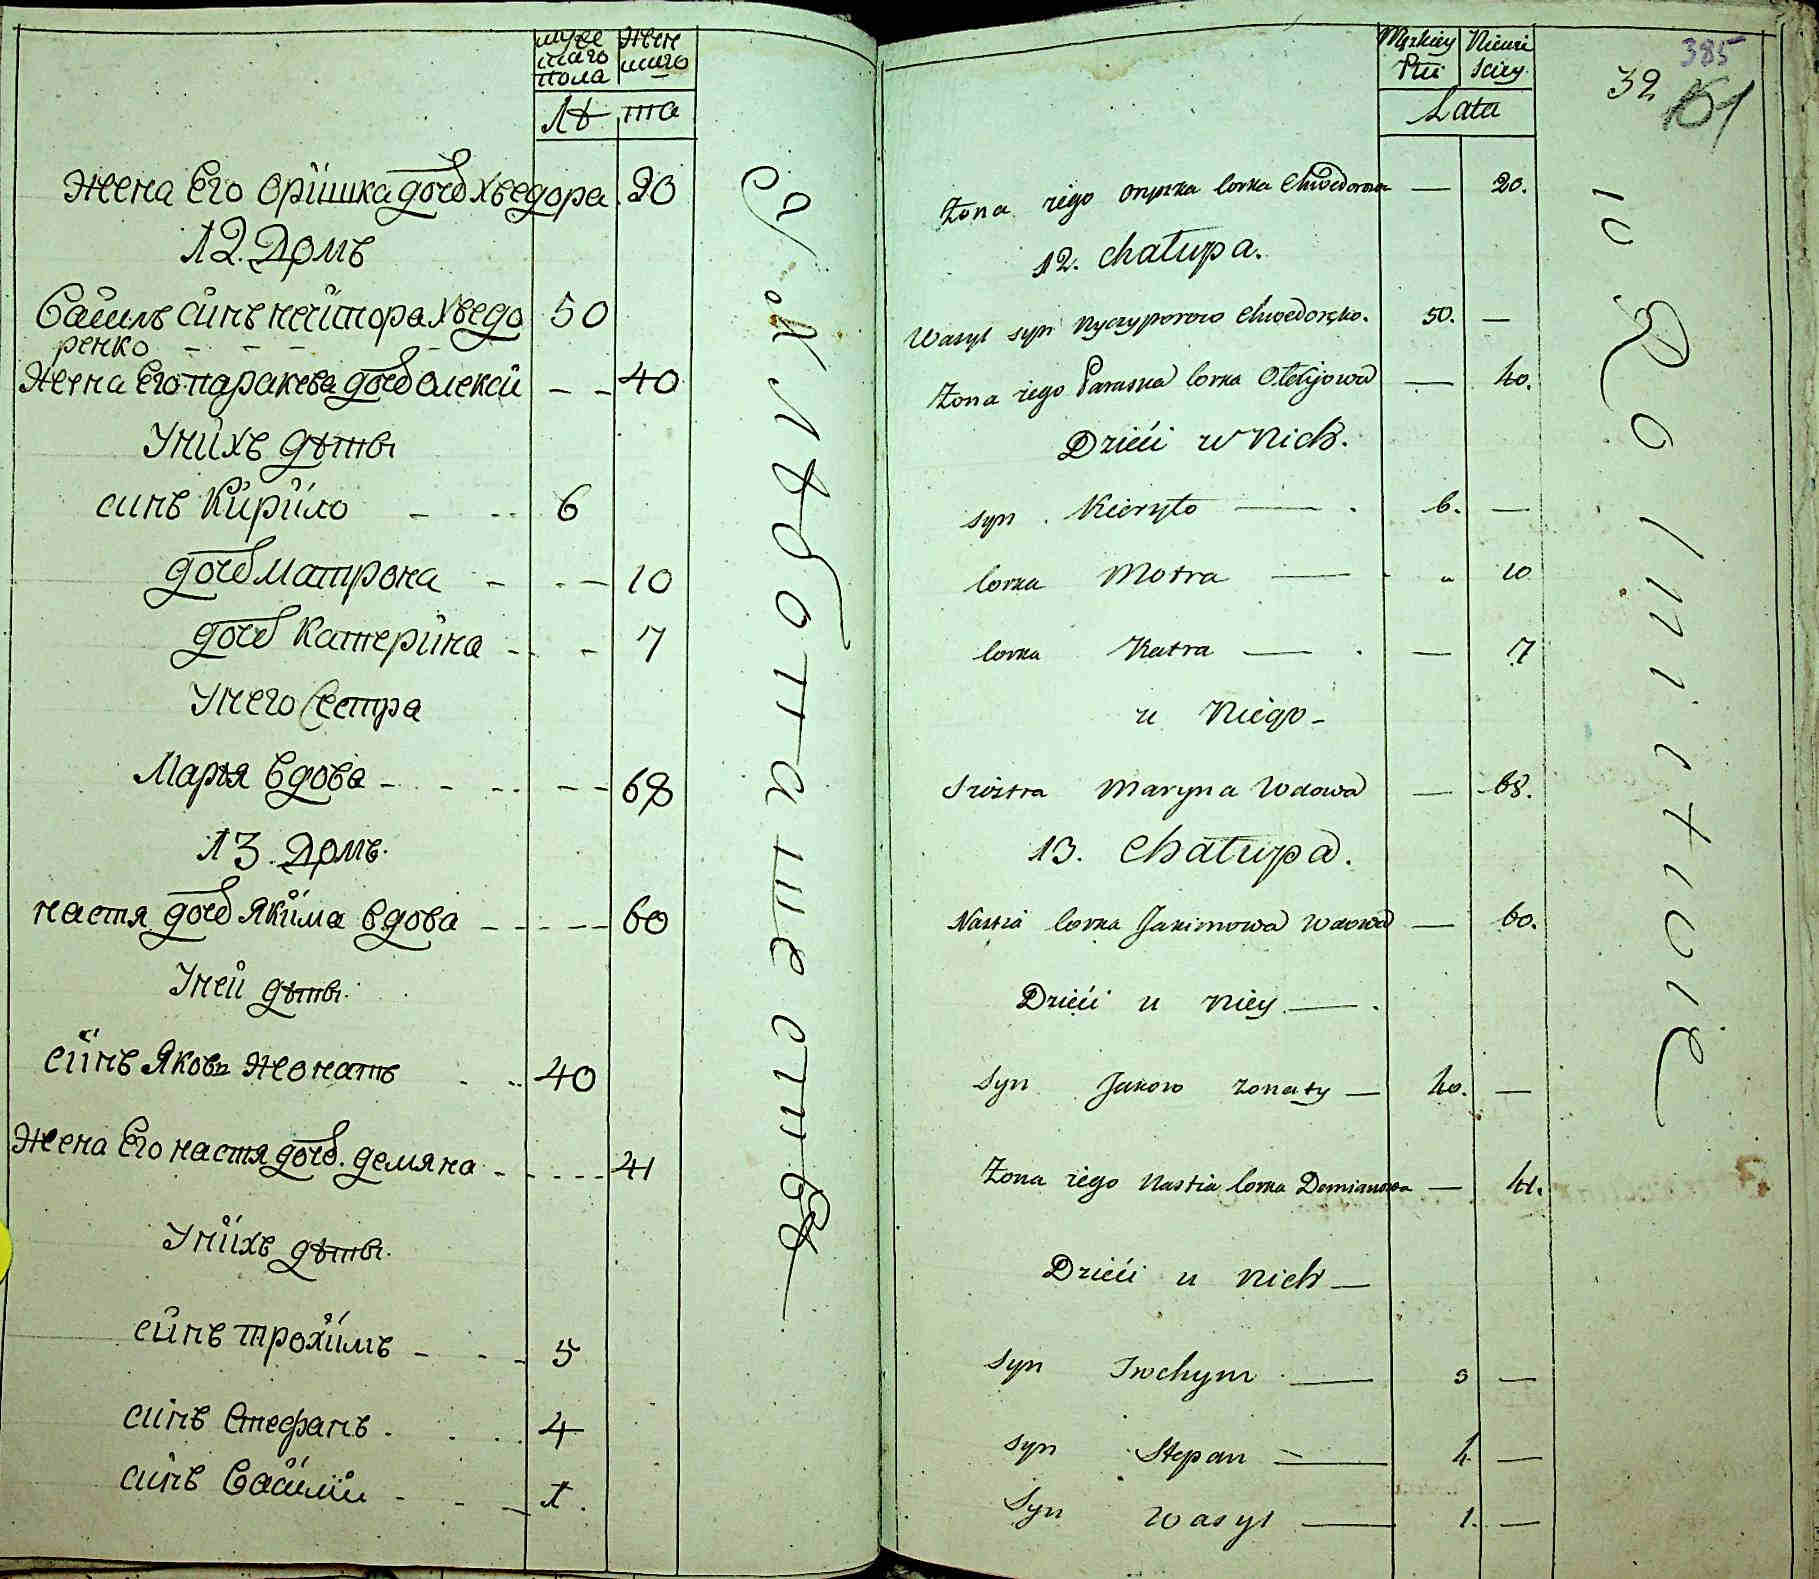 муже
скаго
пола
жен
скаго
лѣ та
жена Его Оришка дочь хведора 20
12. Домъ
Василь синъ нечипора хведо 50
ренко
Жена Его паракева дочь Олексѣй 40
Унихъ дѣтѣ
синъ Кирило 6
дочь Матрона 10
дочь Катерина 7
Унего Сестра
Марья вдова 68
13. Домъ.
настя дочь Якима вдова 60
Уней дѣтѣ.
синъ Яковъ жонатъ 40
Жена Его настя дочь. демяна 41
Унихъ дѣтѣ.
синъ трохимъ 5
синъ Стефанъ. 4
синъ Василій 1.
Męzkiey
Płci
Niewie
sciey
Lata
385
32
151
Żona iego Oryszka corka Chwedorowa — 20.
12. Chałupa.
Wasyl syn Nyczyporow Chwedoręko. 50. —
Żona iego Paraska corka Olexijowa — 40.
Dzieći w nich.
syn Kieryło — 6. —
corka Motra — 10
corka Katra — 7
u Niego —
Siostra Maryna Wdowa — 68.
13. Chałupa.
Nastia corka Jakimowa Wdowa — 60.
Dzieći u niey —
Syn Jakow żonaty — 40. —
Żona iego Nastia corka Demianowa — 41.
Dzieći u nich —
Syn Trochym — 5 —
syn Stepan — 4 —
Syn Wasyl — 1. —